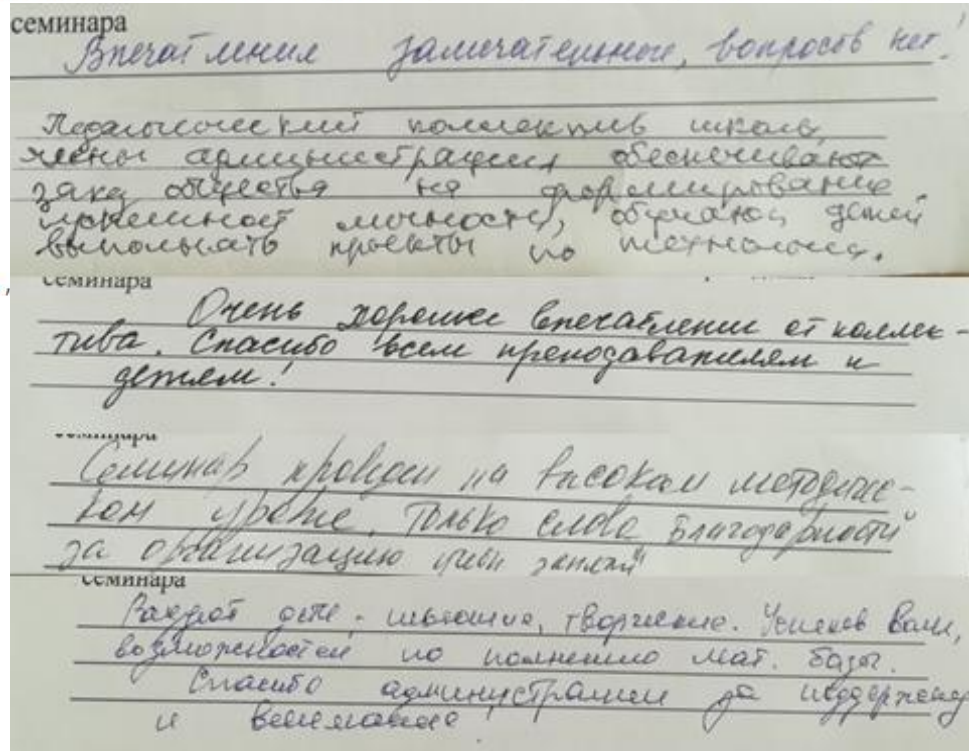 семинара
Впечатления замечательное, вопросов нет!
Педагогический коллектив школы,
члены администрации обеспечивают
заказ общества на формирование
успешной личности, обучают детей
выполнять проекты по технологии.
семинара
Очень хорошее впечатление от коллек-
тива. Спасибо всем преподавателям и
детям!
семинара
Семинар проведен на высоком методиче-
ком уровне. Только слова благодарности
за организацию
семинара
дети - творческие. Успехов Вам,
возможностей по полнению мат. базы.
Спасибо администрации за поддержку
и внимание